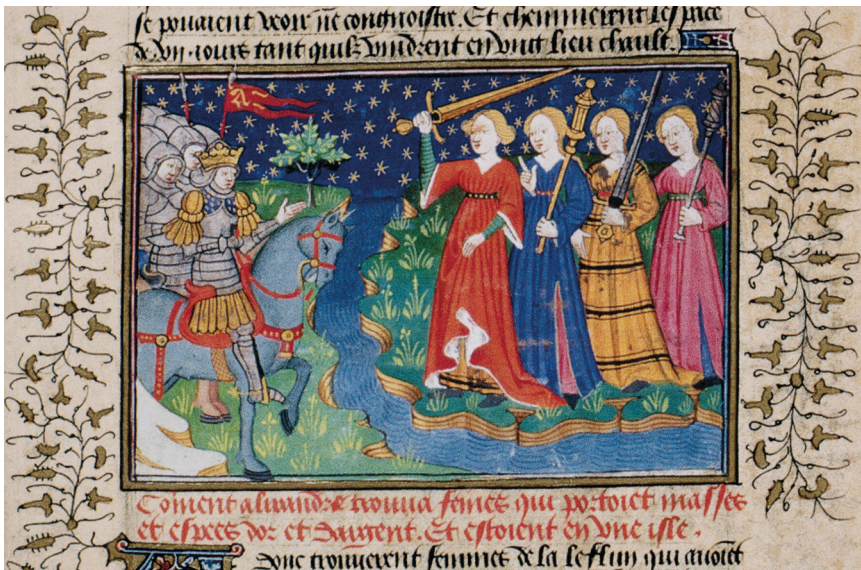 se pouaient veoir ne congnoistre. Et cheminerent lespace
de .vii. iours tant quilz vindrent en vng lieu chault.
Coment alixandre trouua femes qui portoiet masses
et espees dor et dargent. Et estoient en vne isle.
Donc trouuerent femmes de la le flun qui auoiet